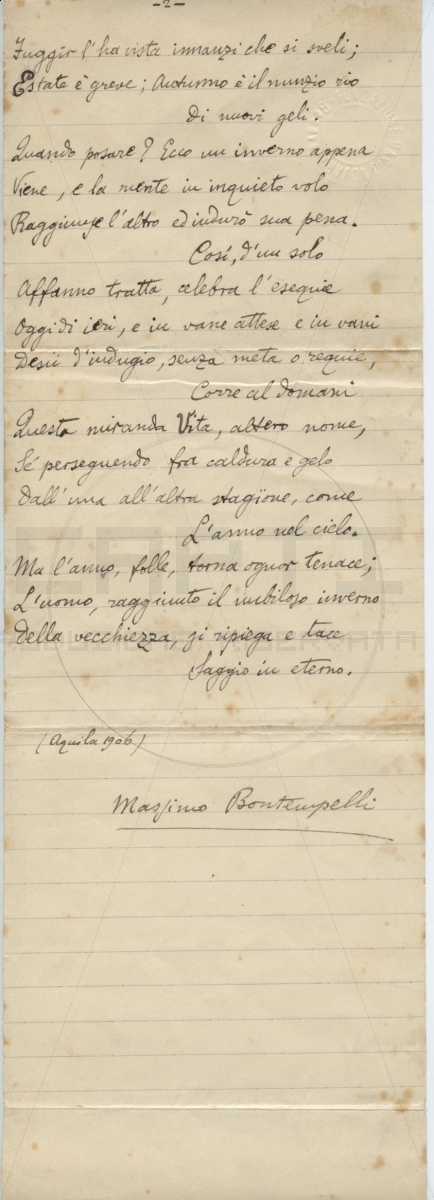 -2-
Fuggir l'ha vista innanzi che si sveli;
Estate è greve; Autunno è il nunzio rio
Di nuovi geli.
Quando posare? Ecco un inverno appena
Viene, e la mente in inquieto volo
Raggiunge l'altro ed indurò sua pena.
Così, d'un solo
Affanno tratta, celebra l'esequie
Oggi di ieri, e in vane attese e in vani
Desii d'indugio, senza meta o requie,
Corre al domani
Questa miranda Vita, altero nome,
Sé perseguendo fra caldura e gelo
Dall'una all'altra stagïone, come
L'anno nel cielo.
Ma l'anno, folle, torna ognor tenace;
L'uomo, raggiunto il nubiloso inverno
Della vecchiezza, si ripiega e tace
Saggio in eterno.
(Aquila 1906)
Massimo Bontempelli